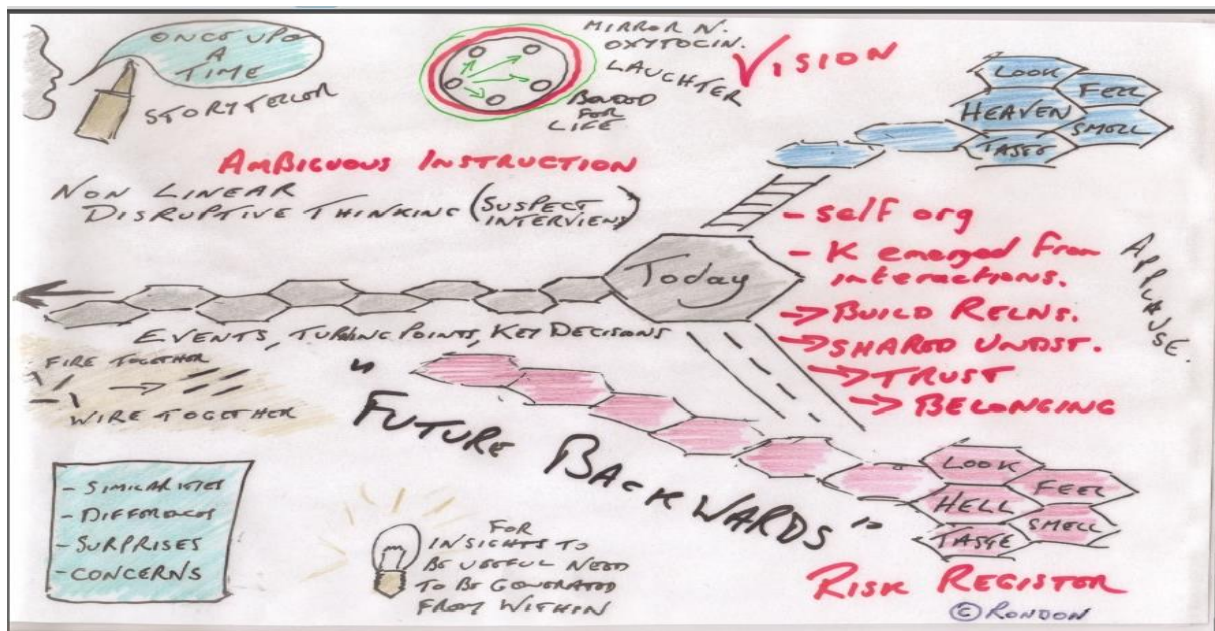 ONCE UPO
A
TIME
STORYTELLOR
MIRROR N.
OXYTOCIN.
LAUGHTER
BONDED
FOR
LIFE
VISION
LOOK
FEEL
HEAVEN
SMELL
TASTE
AMBIGUOUS INSTRUCTION
NON LINEAR
DISRUPTIVE THINKING (SUSPECT
INTERVIEWS)
Today
- self org
- K emerged from
interactions.
→ BUILD RELNS.
→ SHARED UNDST.
→ TRUST
→ BELONGING
APPLAUSE.
EVENTS, TURNING POINTS, KEY DECISIONS
FIRE TOGETHER
WIRE TOGETHER
"FUTURE BACKWARDS"
LOOK
FEEL
HELL
SMELL
TASTE
RISK REGISTER
© RONDON
- SIMILARITIES
- DIFFERENCES
- SURPRISES
- CONCERNS
FOR
INSIGHTS TO
BE USEFUL NEED
TO BE GENERATED
FROM WITHIN